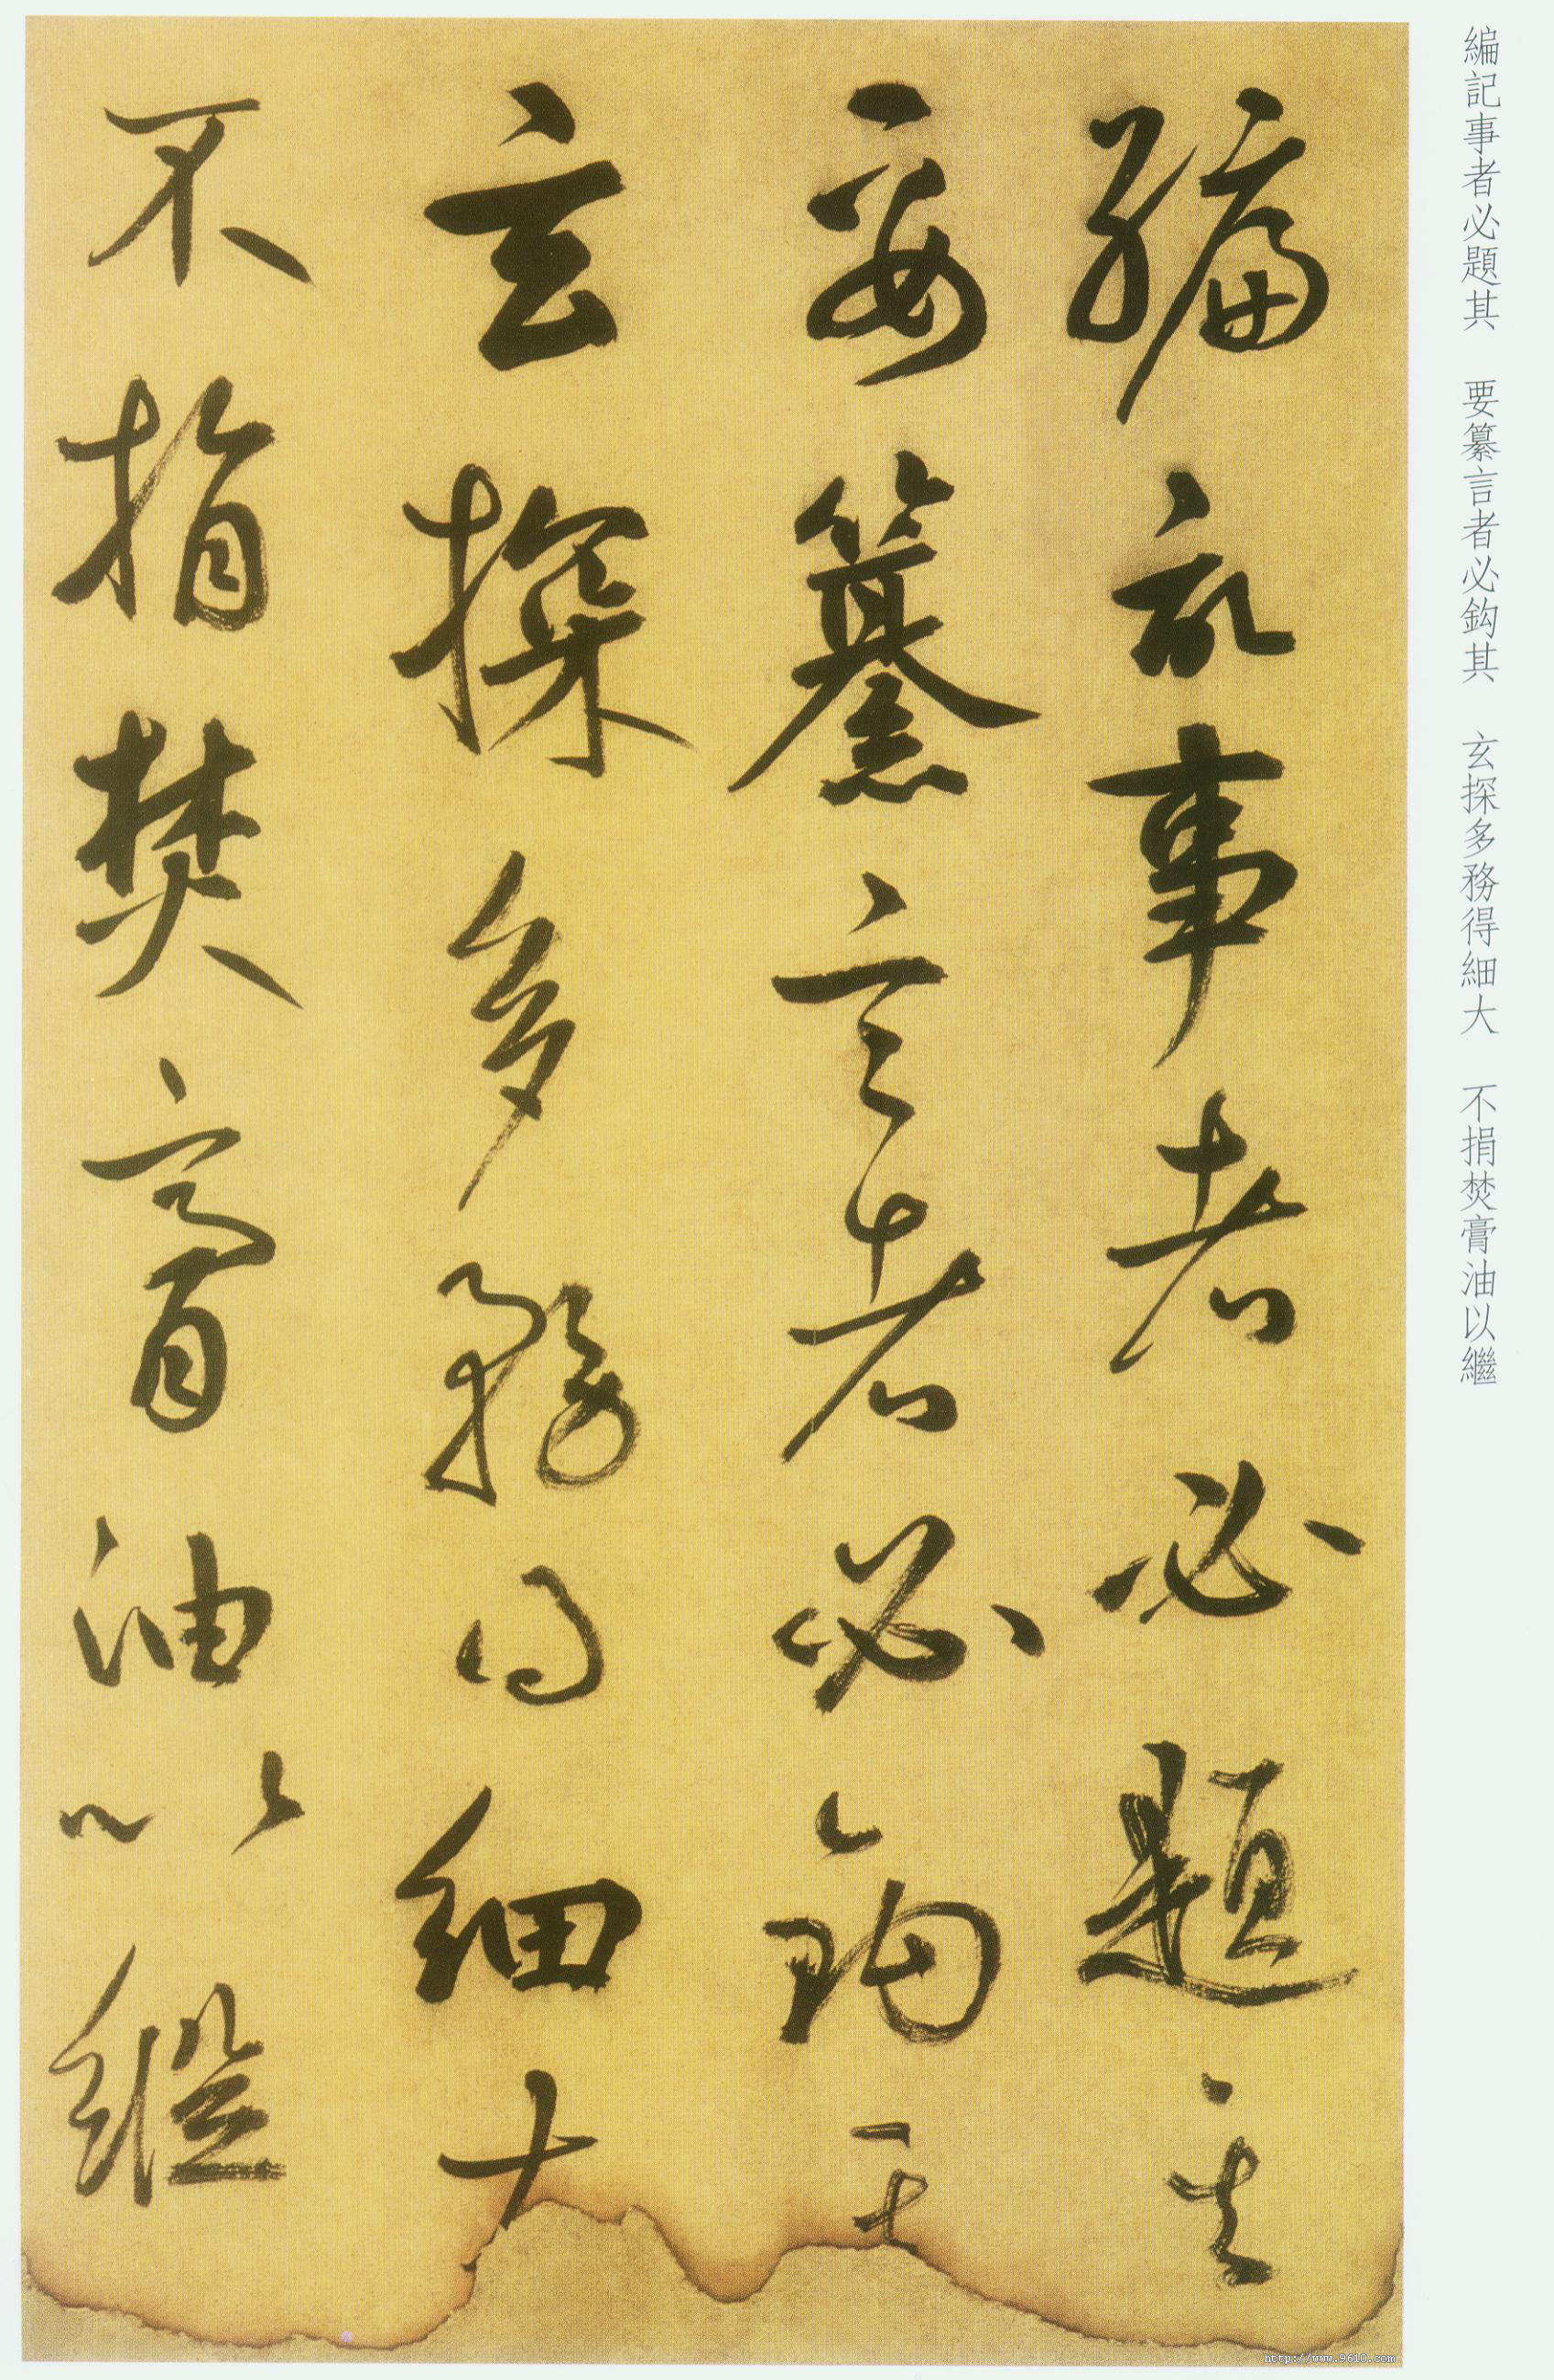 編記事者必題其　要纂言者必鈎其　玄探多務得細大　不捐焚膏油以繼
編記事者必題其
要纂言者必鈎其
玄探多務得細大
不捐焚膏油以繼
http://www.9610.com